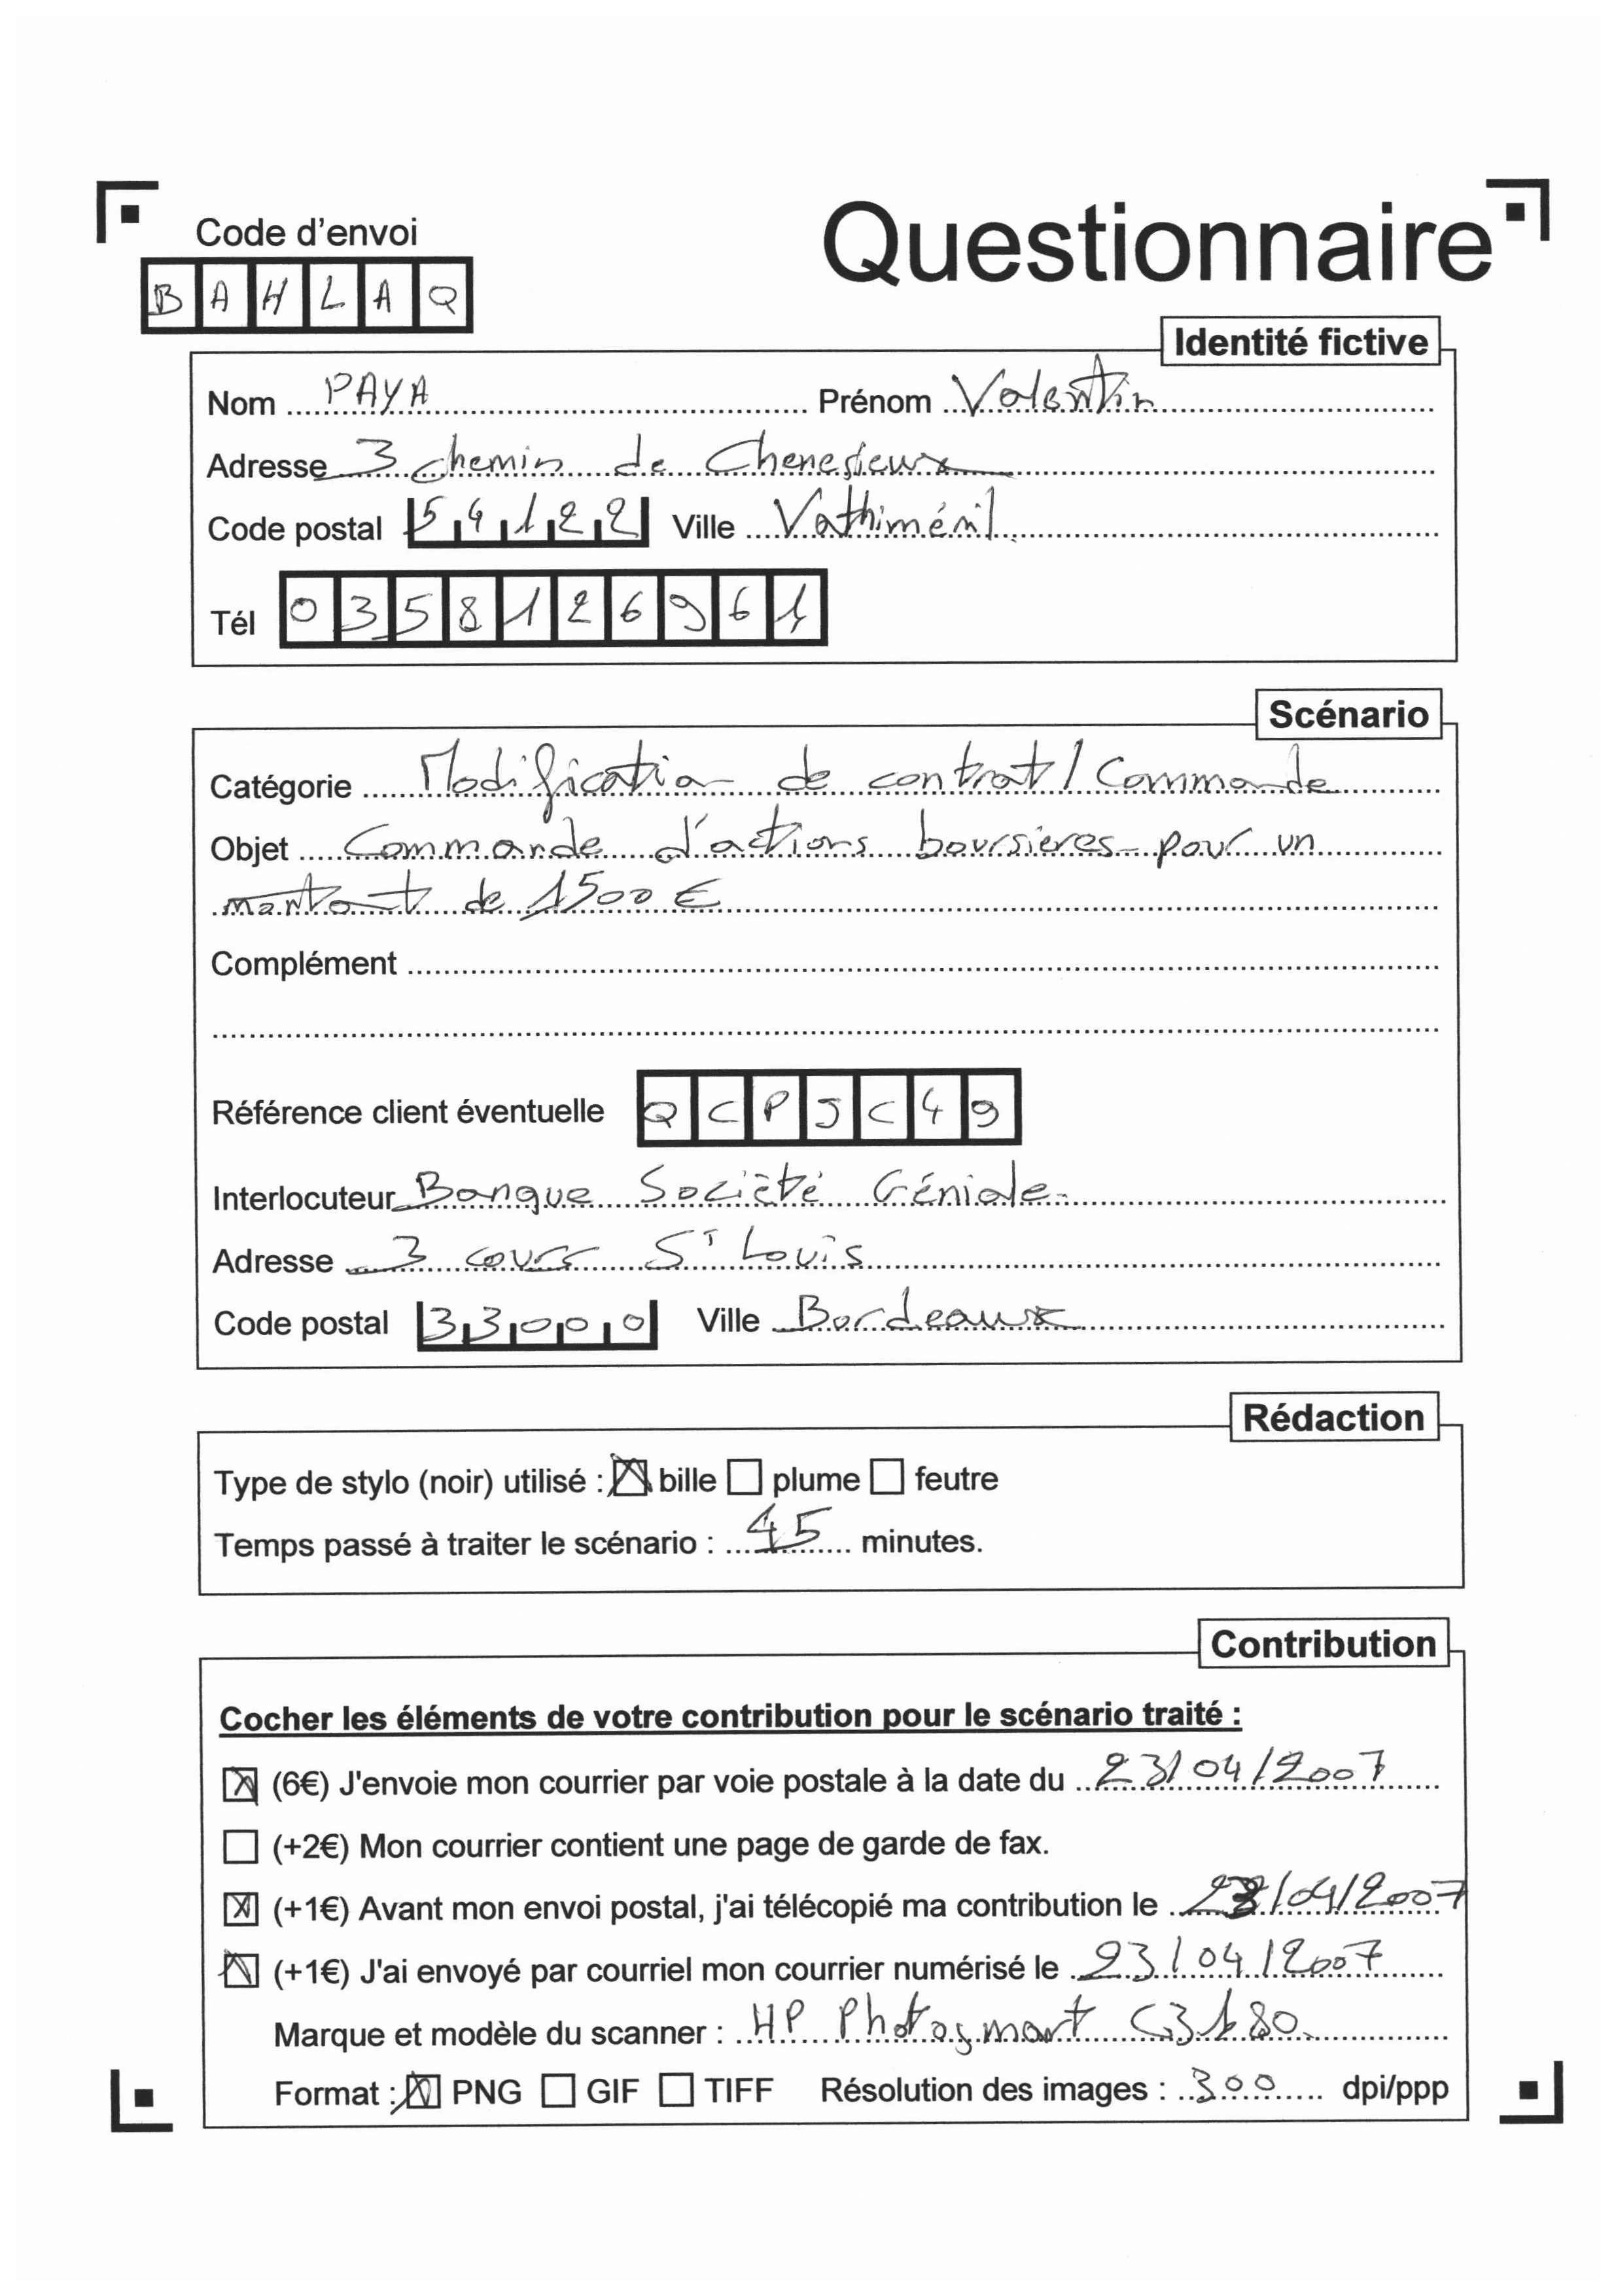 Code d'envoi
Questionnaire
B A H L A Q
Identité fictive
Nom PAYA Prénom Valentin
Adresse 3 chemin de
Code postal 54122 Ville Vathiménil
Tél 0358126961
Scénario
Catégorie Modification de contrat / Commande
Objet Commande d'actions boursieres pour un
montant de 1500 €
Complément
Référence client éventuelle QCPJC49
Interlocuteur Banque Société Géniale
Adresse 3 cours St Louis
Code postal 33000 Ville Bordeaux
Rédaction
Type de stylo (noir) utilisé : ☒ bille ☐ plume ☐ feutre
Temps passé à traiter le scénario : 45 minutes.
Contribution
Cocher les éléments de votre contribution pour le scénario traité :
☒ (6€) J'envoie mon courrier par voie postale à la date du 23/04/2007
☐ (+2€) Mon courrier contient une page de garde de fax.
☒ (+1€) Avant mon envoi postal, j'ai télécopié ma contribution le 23/04/2007
☒ (+1€) J'ai envoyé par courriel mon courrier numérisé le 23/04/2007
Marque et modèle du scanner : HP Photosmart C3180
Format : ☒ PNG ☐ GIF ☐ TIFF Résolution des images : 300 dpi/ppp